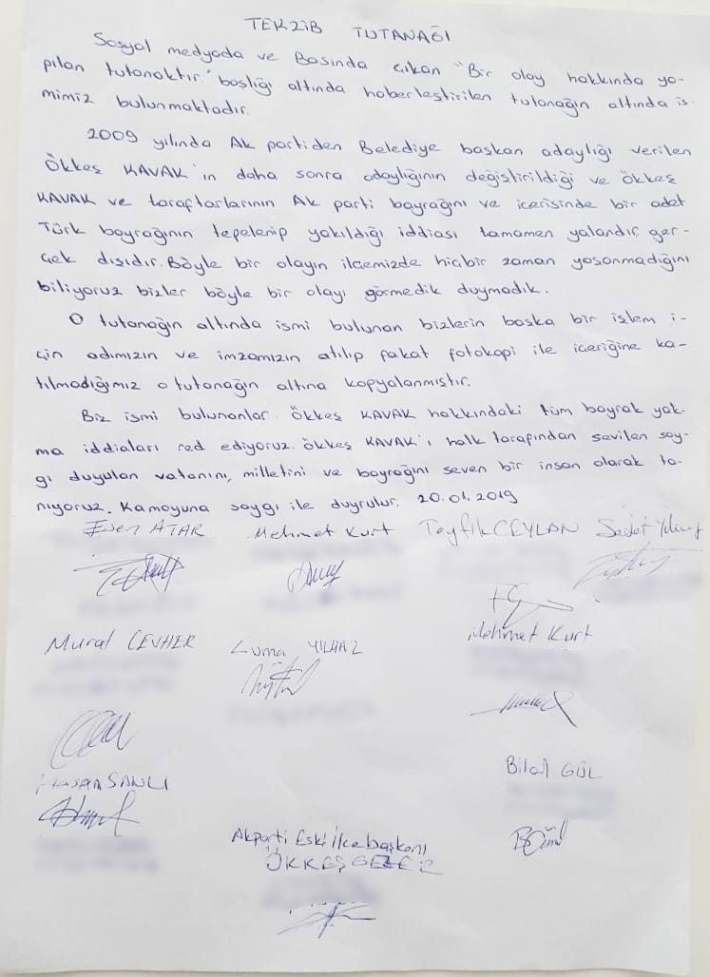 TEKZİB TUTANAĞI
Sosyal medyada ve Basında çıkan "Bir olay hakkında ya-
pılan tutanaktır" başlığı altında haberleştirilen tutanağın altında is-
mimiz bulunmaktadır.
2009 yılında Ak partiden Belediye başkan adaylığı verilen
Ökkeş KAVAK'ın daha sonra adaylığının değiştirildiği ve Ökkeş
KAVAK ve taraftarlarının Ak parti bayrağını ve içerisinde bir adet
Türk bayrağının tepelenip yakıldığı iddiası tamamen yalandır, ger-
çek dışıdır. Böyle bir olayın ilçemizde hiçbir zaman yaşanmadığını
biliyoruz bizler böyle bir olayı görmedik duymadık.
O tutanağın altında ismi bulunan bizlerin başka bir işlem i-
çin adımızın ve imzamızın atılıp fakat fotokopi ile içeriğine ka-
tılmadığımız o tutanağın altına kopyalanmıştır.
Biz ismi bulunanlar Ökkeş KAVAK hakkındaki tüm bayrak yak-
ma iddiaları red ediyoruz. Ökkeş KAVAK'ı halk tarafından sevilen say-
gı duyulan vatanını, milletini ve bayrağını seven bir insan olarak ta-
nıyoruz. Kamoyuna saygı ile duyrulur. 20.01.2019
ATAR Mehmet Kurt Teyfik CEYLAN Sedat
Murat CEVHER Cuma YILMAZ Mehmet Kurt
Hasan SANLI Bilal GÜL
Akparti Eski ilçe başkanı
ÖKKEŞ GEZER